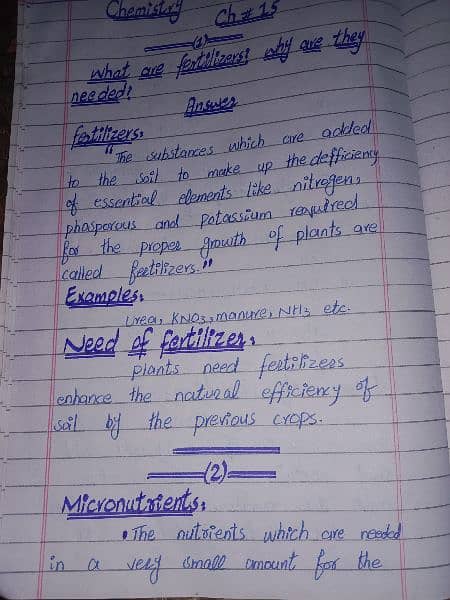 Chemistry Ch # 15
(1)
What are fertilizers? why are they
needed?
Answer
fertilizers:
"The substances which are added
to the soil to make up the defficiency
of essential elements like nitrogen,
phosporous and potassium required
for the proper growth of plants are
called fertilizers."
Examples:
Urea, KNO3, manure, NH3 etc.
Need of fertilizer:
plants need fertilizers
enhance the natural efficiency of
soil by the previous crops.
(2)
Micronutrients:
• The nutrients which are needed
in a very small amount for the